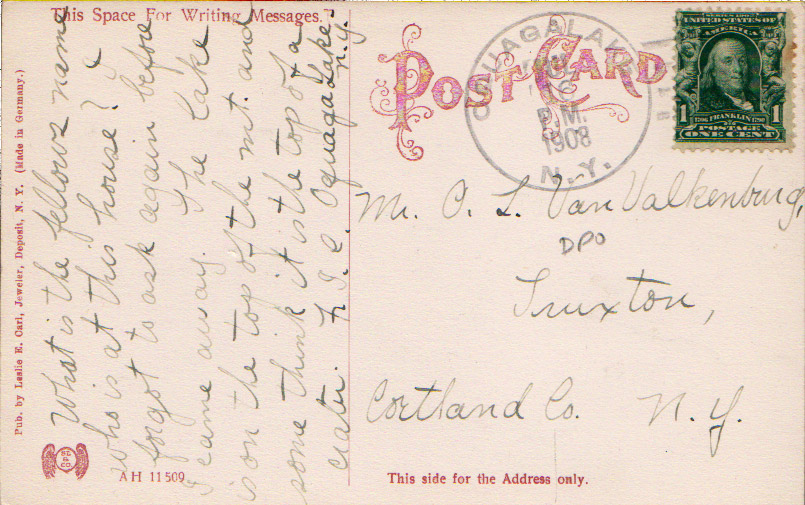 This Space For Writing Messages.
What is the fellows name
who is at this house? I
forgot to ask again before
I came away. The Lake
is on the top of the mt. and
some think it is the top of a
crater. L. I. C. Oquaga Lake
N.Y.
Pub. by Leslie E. Carl, Jeweler, Deposit, N. Y. (Made in Germany.)
AH 11509
POST CARD
P.M.
1908
N.Y.
SERIES 1902
UNITED STATES OF
AMERICA
1 1
1706 FRANKLIN 1790
POSTAGE
ONE CENT
Mr. O. L. Van Valkenburg,
DPO
Truxton,
Cortland Co. N.Y.
This side for the Address only.